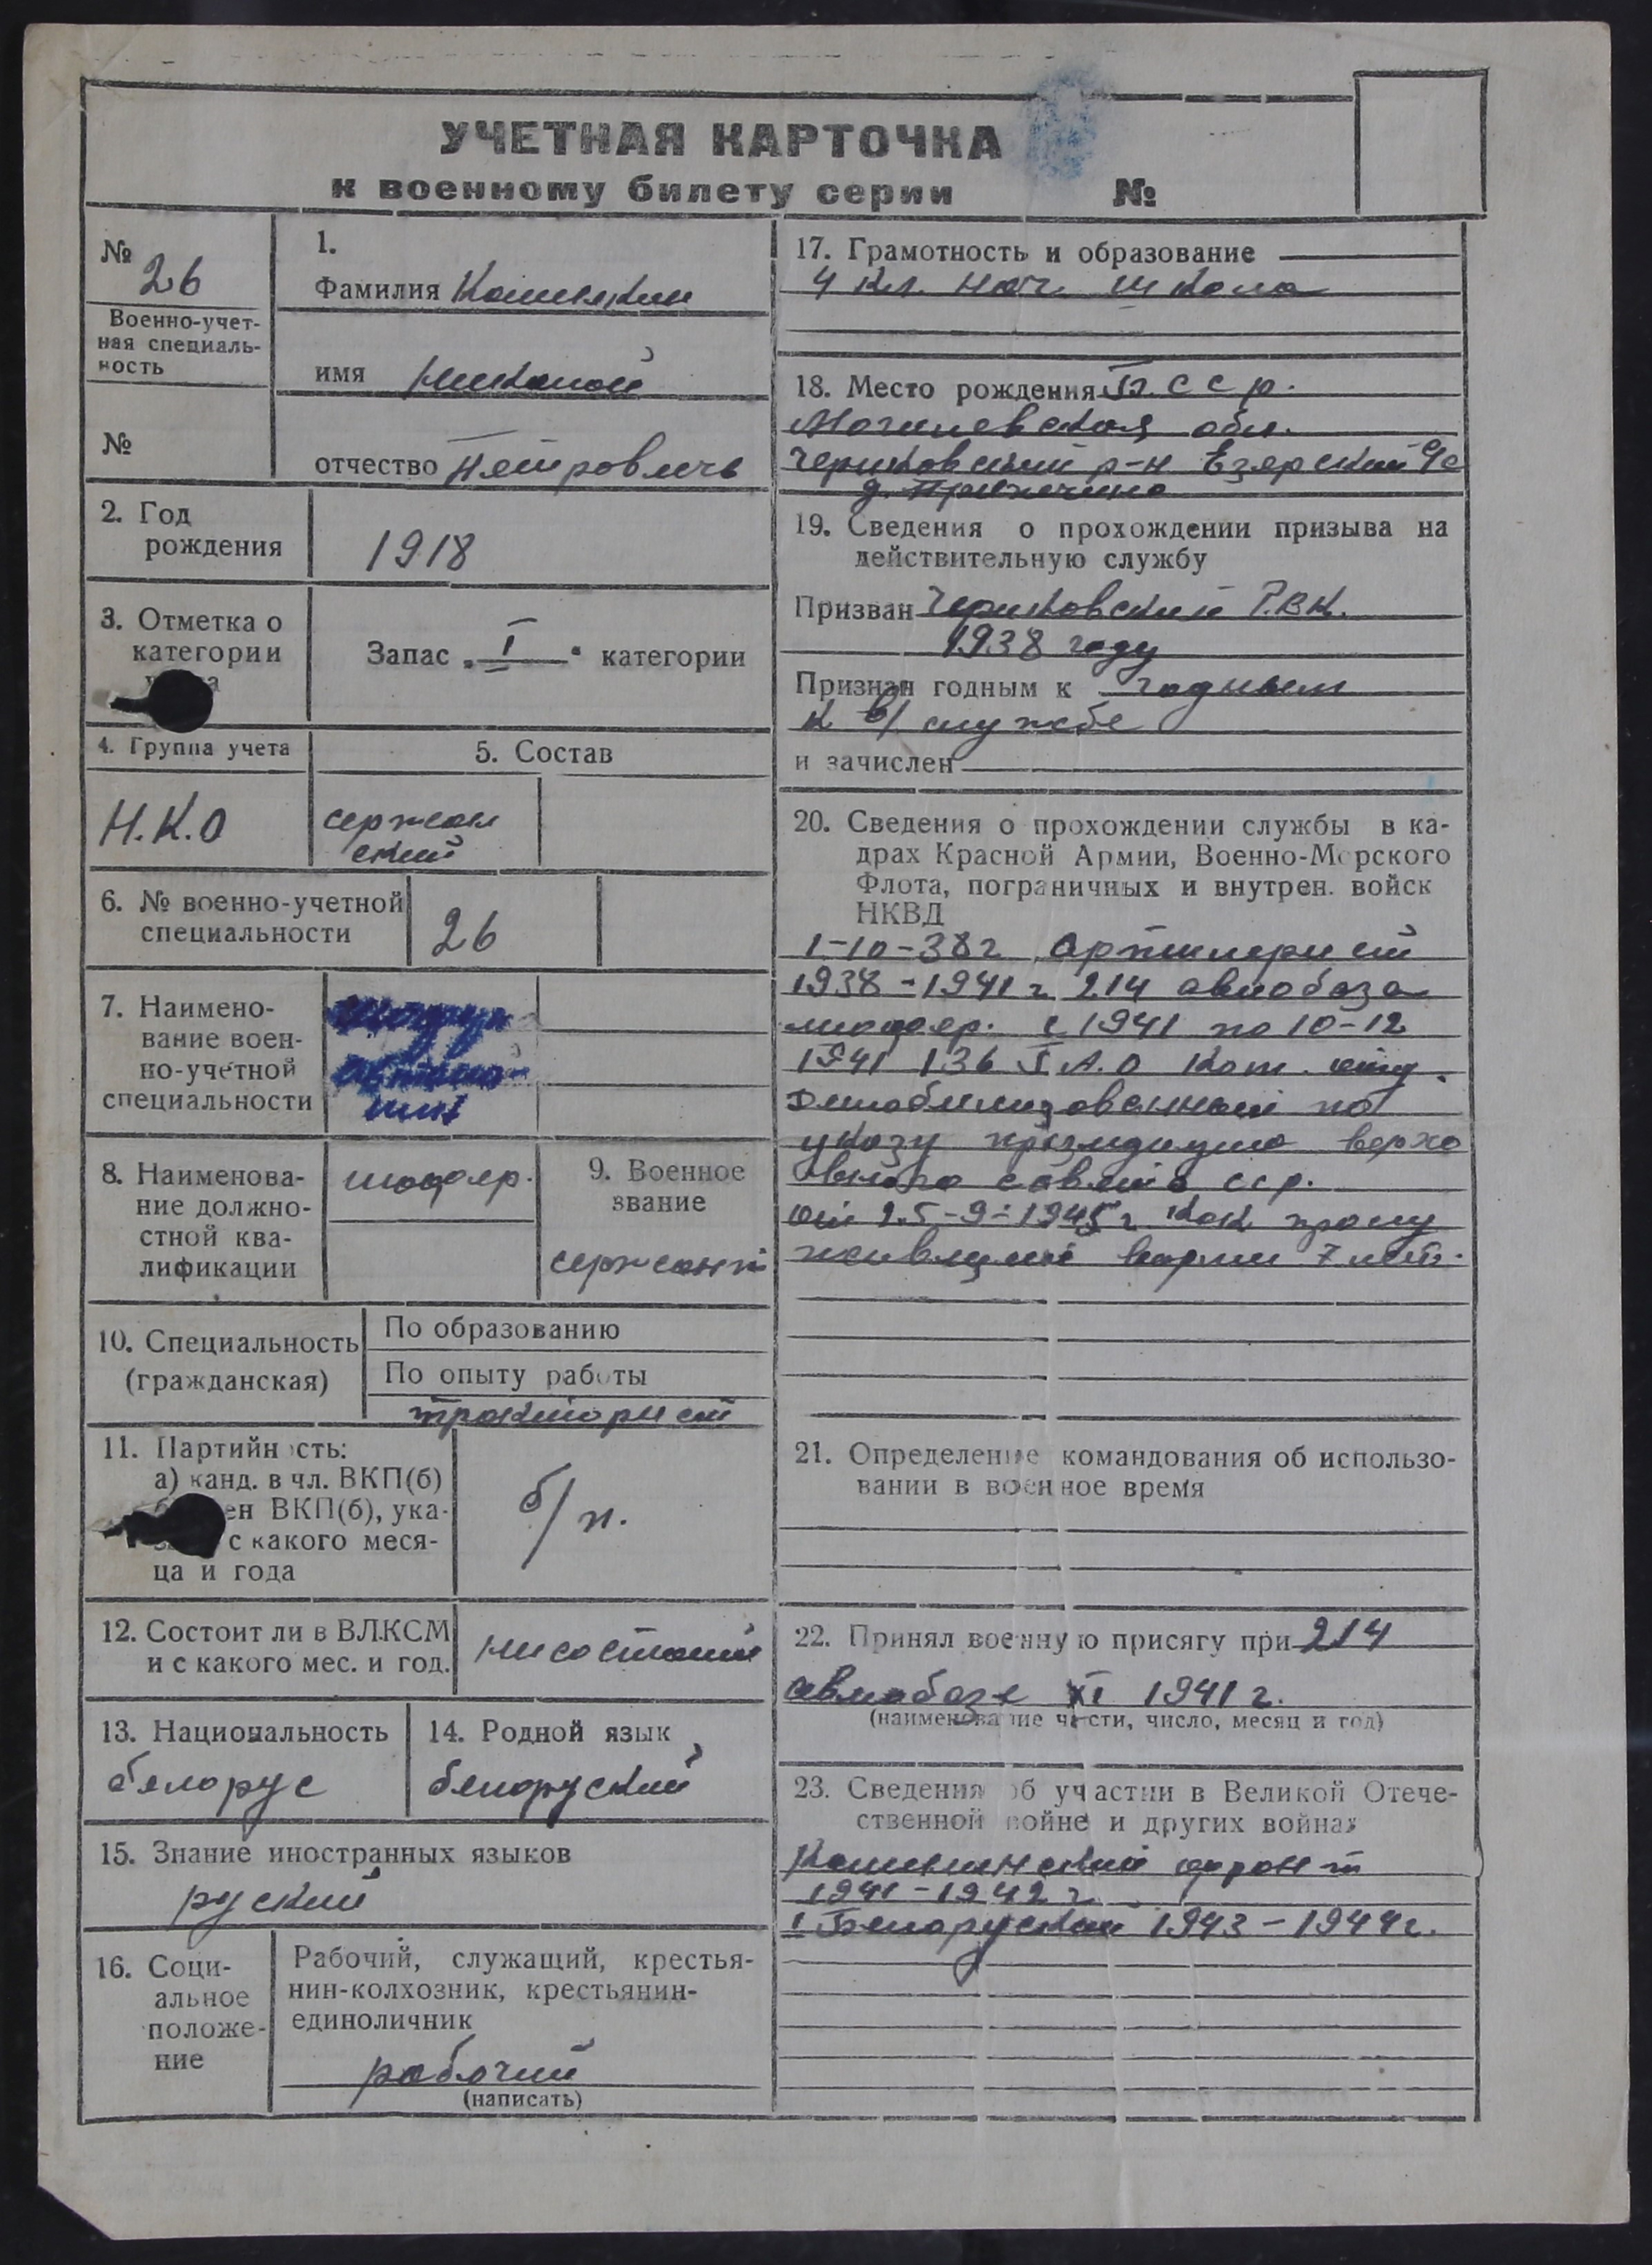 УЧЕТНАЯ КАРТОЧКА
к военному билету серии №
№ 26
Военно-учет-
ная специаль-
ность
№
1.
Фамилия
имя Николай
отчество Петровичь
2. Год
рождения
1918
3. Отметка о
категории
Запас „I“ категории
4. Группа учета
Н.К.О
5. Состав
сержан
ский
6. № военно-учетной
специальности
26
7. Наимено-
вание воен-
но-учетной
специальности
8. Наименова-
ние должно-
стной ква-
лификации
шофер.
9. Военное
звание
сержант
10. Специальность
(гражданская)
По образованию
По опыту работы
тракторист
11. Партийность:
а) канд. в чл. ВКП(б)
ен ВКП(б), ука-
с какого меся-
ца и года
б/п.
12. Состоит ли в ВЛКСМ
и с какого мес. и год.
нисостоит
13. Национальность
белорус
14. Родной язык
белоруский
15. Знание иностранных языков
руский
16. Соци-
альное
положе-
ние
Рабочий, служащий, крестья-
нин-колхозник, крестьянин-
единоличник
рабочий
(написать)
17. Грамотность и образование
4 кл. нач. школа
18. Место рождения Б.ССР.
Могилевская обл.
Чериковский р-н Езерский
д.
19. Сведения о прохождении призыва на
действительную службу
Призван Чериковский Р.В.К.
1938 году
Признан годным к годным
к в/службе
и зачислен
20. Сведения о прохождении службы в ка-
драх Красной Армии, Военно-Морского
Флота, пограничных и внутрен. войск
НКВД
1-10-38г артилерист
1938-1941г 214 авиобаза
шофер. с 1941 по 10-12
1941 136 А.О Ком. отд.
Демобилизованный по
указу президиума верхо
вного совета сср.
от 25-9-1945г как прослу
живщий варми 7 лет.
21. Определение командования об использо-
вании в военное время
22. Принял военную присягу при 214
авиабазе XI 1941 г.
(наименование части, число, месяц и год)
23. Сведения об участии в Великой Отече-
ственной войне и других войнах
Калининский фронт
1941-1942 г
I Белоруский 1943-1944г.